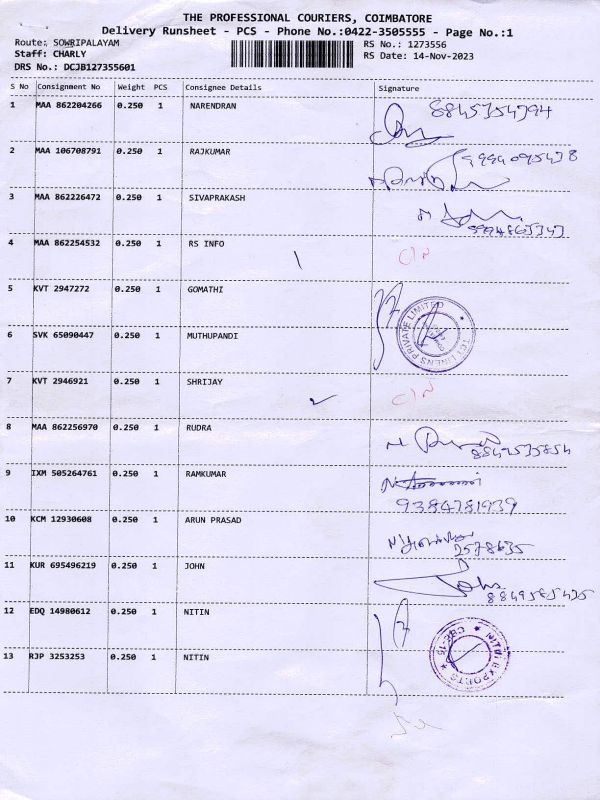 THE PROFESSIONAL COURIERS, COIMBATORE
Delivery Runsheet - PCS - Phone No.:0422-3505555 - Page No.:1
Route: SOWRIPALAYAM
RS No.: 1273556
Staff: CHARLY
RS Date: 14-Nov-2023
DRS No.: DCJB127355601
S No Consignment No Weight PCS Consignee Details Signature
1 MAA 862204266 0.250 1 NARENDRAN
2 MAA 106708791 0.250 1 RAJKUMAR
3 MAA 862226472 0.250 1 SIVAPRAKASH
4 MAA 862254532 0.250 1 RS INFO C/N
5 KVT 2947272 0.250 1 GOMATHI
PRIVATE LIMITED
6 SVK 65090447 0.250 1 MUTHUPANDI
7 KVT 2946921 0.250 1 SHRIJAY C/N
8 MAA 862256970 0.250 1 RUDRA
9 IXM 505264761 0.250 1 RAMKUMAR
9384781939
10 KCM 12930608 0.250 1 ARUN PRASAD
2578635
11 KUR 695496219 0.250 1 JOHN
12 EDQ 14980612 0.250 1 NITIN
NITIN EXPORTS CBE-15
13 RJP 3253253 0.250 1 NITIN